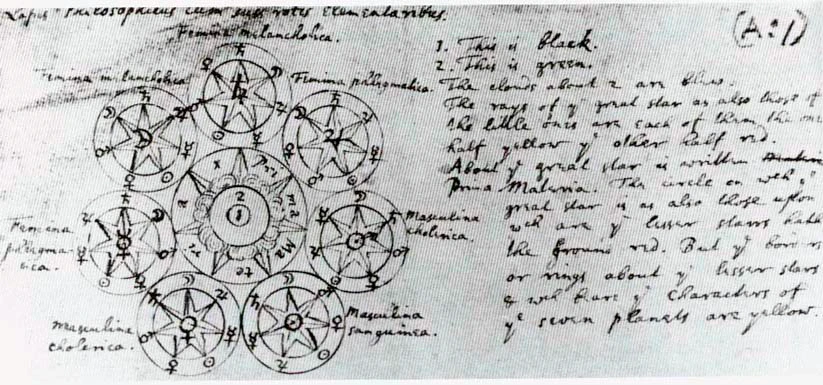 Lapis Philosophicus cum suis rotis elementaribus.
(A:1)
Femina melancholica.
Femina melancholica
Femina phlegmatica.
Femina phlegmatica.
Masculina cholerica.
Masculina cholerica.
Masculina sanguinea.
Prima Materia
2
1
1. This is black.
2. This is green.
The clouds about 2 are blew.
The rays of yͤ great star as also those of
the little ones are each of them the one
half yellow yͤ other half red.
About yͤ great star is written
Prima Materia. The circle on wch yͤ
great star is as also those upon
wch are yͤ lesser starrs hath
the ground red. But yͤ borders
or rings about yͤ lesser stars
& wch beare yͤ characters of
yͤ seven planets are yellow.